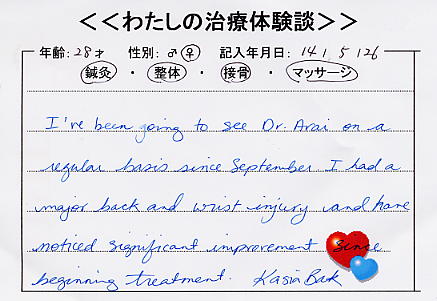 <<わたしの治療体験談>>
年齢:28才 性別:♂♀ 記入年月日:14 1.5 126
鍼灸・整体・接骨・マッサージ
I've been going to see Dr. Arai on a
regular basis since September. I had a
major back and wrist injury and have
noticed significant improvement since
beginning treatment. Kasia Bak